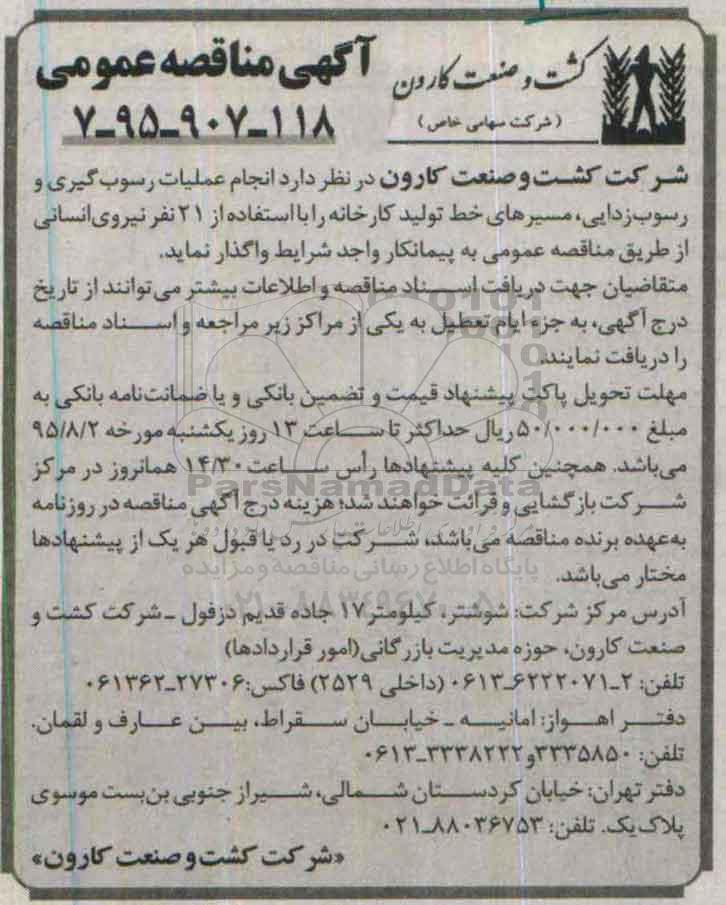 کشت و صنعت کارون
(شرکت سهامی خاص)
آگهی مناقصه عمومی
۷-۹۵-۹۰۷-۱۱۸
شرکت کشت و صنعت کارون در نظر دارد انجام عملیات رسوب گیری و
رسوب‌زدایی، مسیرهای خط تولید کارخانه را با استفاده از ۲۱ نفر نیروی انسانی
از طریق مناقصه عمومی به پیمانکار واجد شرایط واگذار نماید.
متقاضیان جهت دریافت اسناد مناقصه و اطلاعات بیشتر می‌توانند از تاریخ
درج آگهی، به جزء ایام تعطیل به یکی از مراکز زیر مراجعه و اسناد مناقصه
را دریافت نمایند.
مهلت تحویل پاکت پیشنهاد قیمت و تضمین بانکی و یا ضمانت‌نامه بانکی به
مبلغ ۵۰/۰۰۰/۰۰۰ ریال حداکثر تا ساعت ۱۳ روز یکشنبه مورخه ۹۵/۸/۲
می‌باشد. همچنین کلیه پیشنهادها رأس ساعت ۱۴/۳۰ همانروز در مرکز
شرکت بازگشایی و قرائت خواهند شد؛ هزینه درج آگهی مناقصه در روزنامه
به‌عهده برنده مناقصه می‌باشد، شرکت در رد یا قبول هر یک از پیشنهادها
مختار می‌باشد.
آدرس مرکز شرکت: شوشتر، کیلومتر ۱۷ جاده قدیم دزفول - شرکت کشت و
صنعت کارون، حوزه مدیریت بازرگانی (امور قراردادها)
تلفن: ۲-۰۶۱۳-۶۲۲۲۰۷۱ (داخلی ۲۵۲۹) فاکس: ۰۶۱۳۶۲-۲۷۳۰۶
دفتر اهواز: امانیه - خیابان سقراط، بین عارف و لقمان.
تلفن: ۳۳۳۵۸۵۰ و ۰۶۱۳-۳۳۳۸۲۲۲
دفتر تهران: خیابان کردستان شمالی، شیراز جنوبی بن‌بست موسوی
پلاک یک. تلفن: ۰۲۱-۸۸۰۳۶۷۵۳
«شرکت کشت و صنعت کارون»
ParsNamadData
پایگاه اطلاع رسانی مناقصه و مزایده